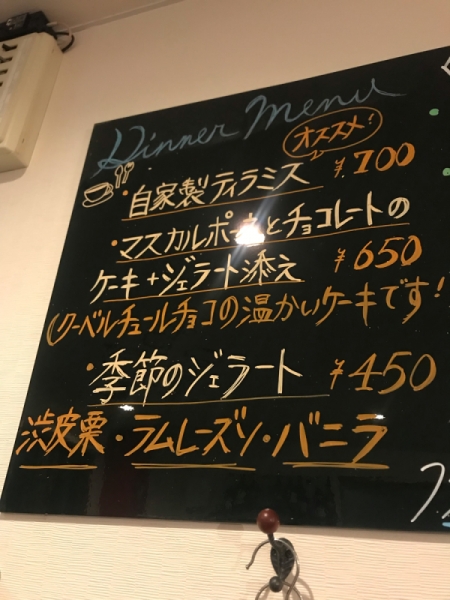 Dinner Menu
オススメ!
・自家製ティラミス ¥700
・マスカルポーネとチョコレートの
ケーキ+ジェラート添え ¥650
(クーベルチュールチョコの温かいケーキです!
・季節のジェラート ¥450
渋皮栗・ラムレーズン・バニラ